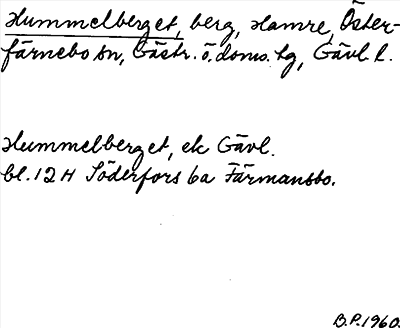 Hummelberget, berg, Hamre, Öster-
färnebo sn, Gästr. ö. doms. tg, Gävl. l.
Hummelberget, ek Gävl.
bl. 12 H Söderfors 6a Färmansbo.
B.P. 1960.